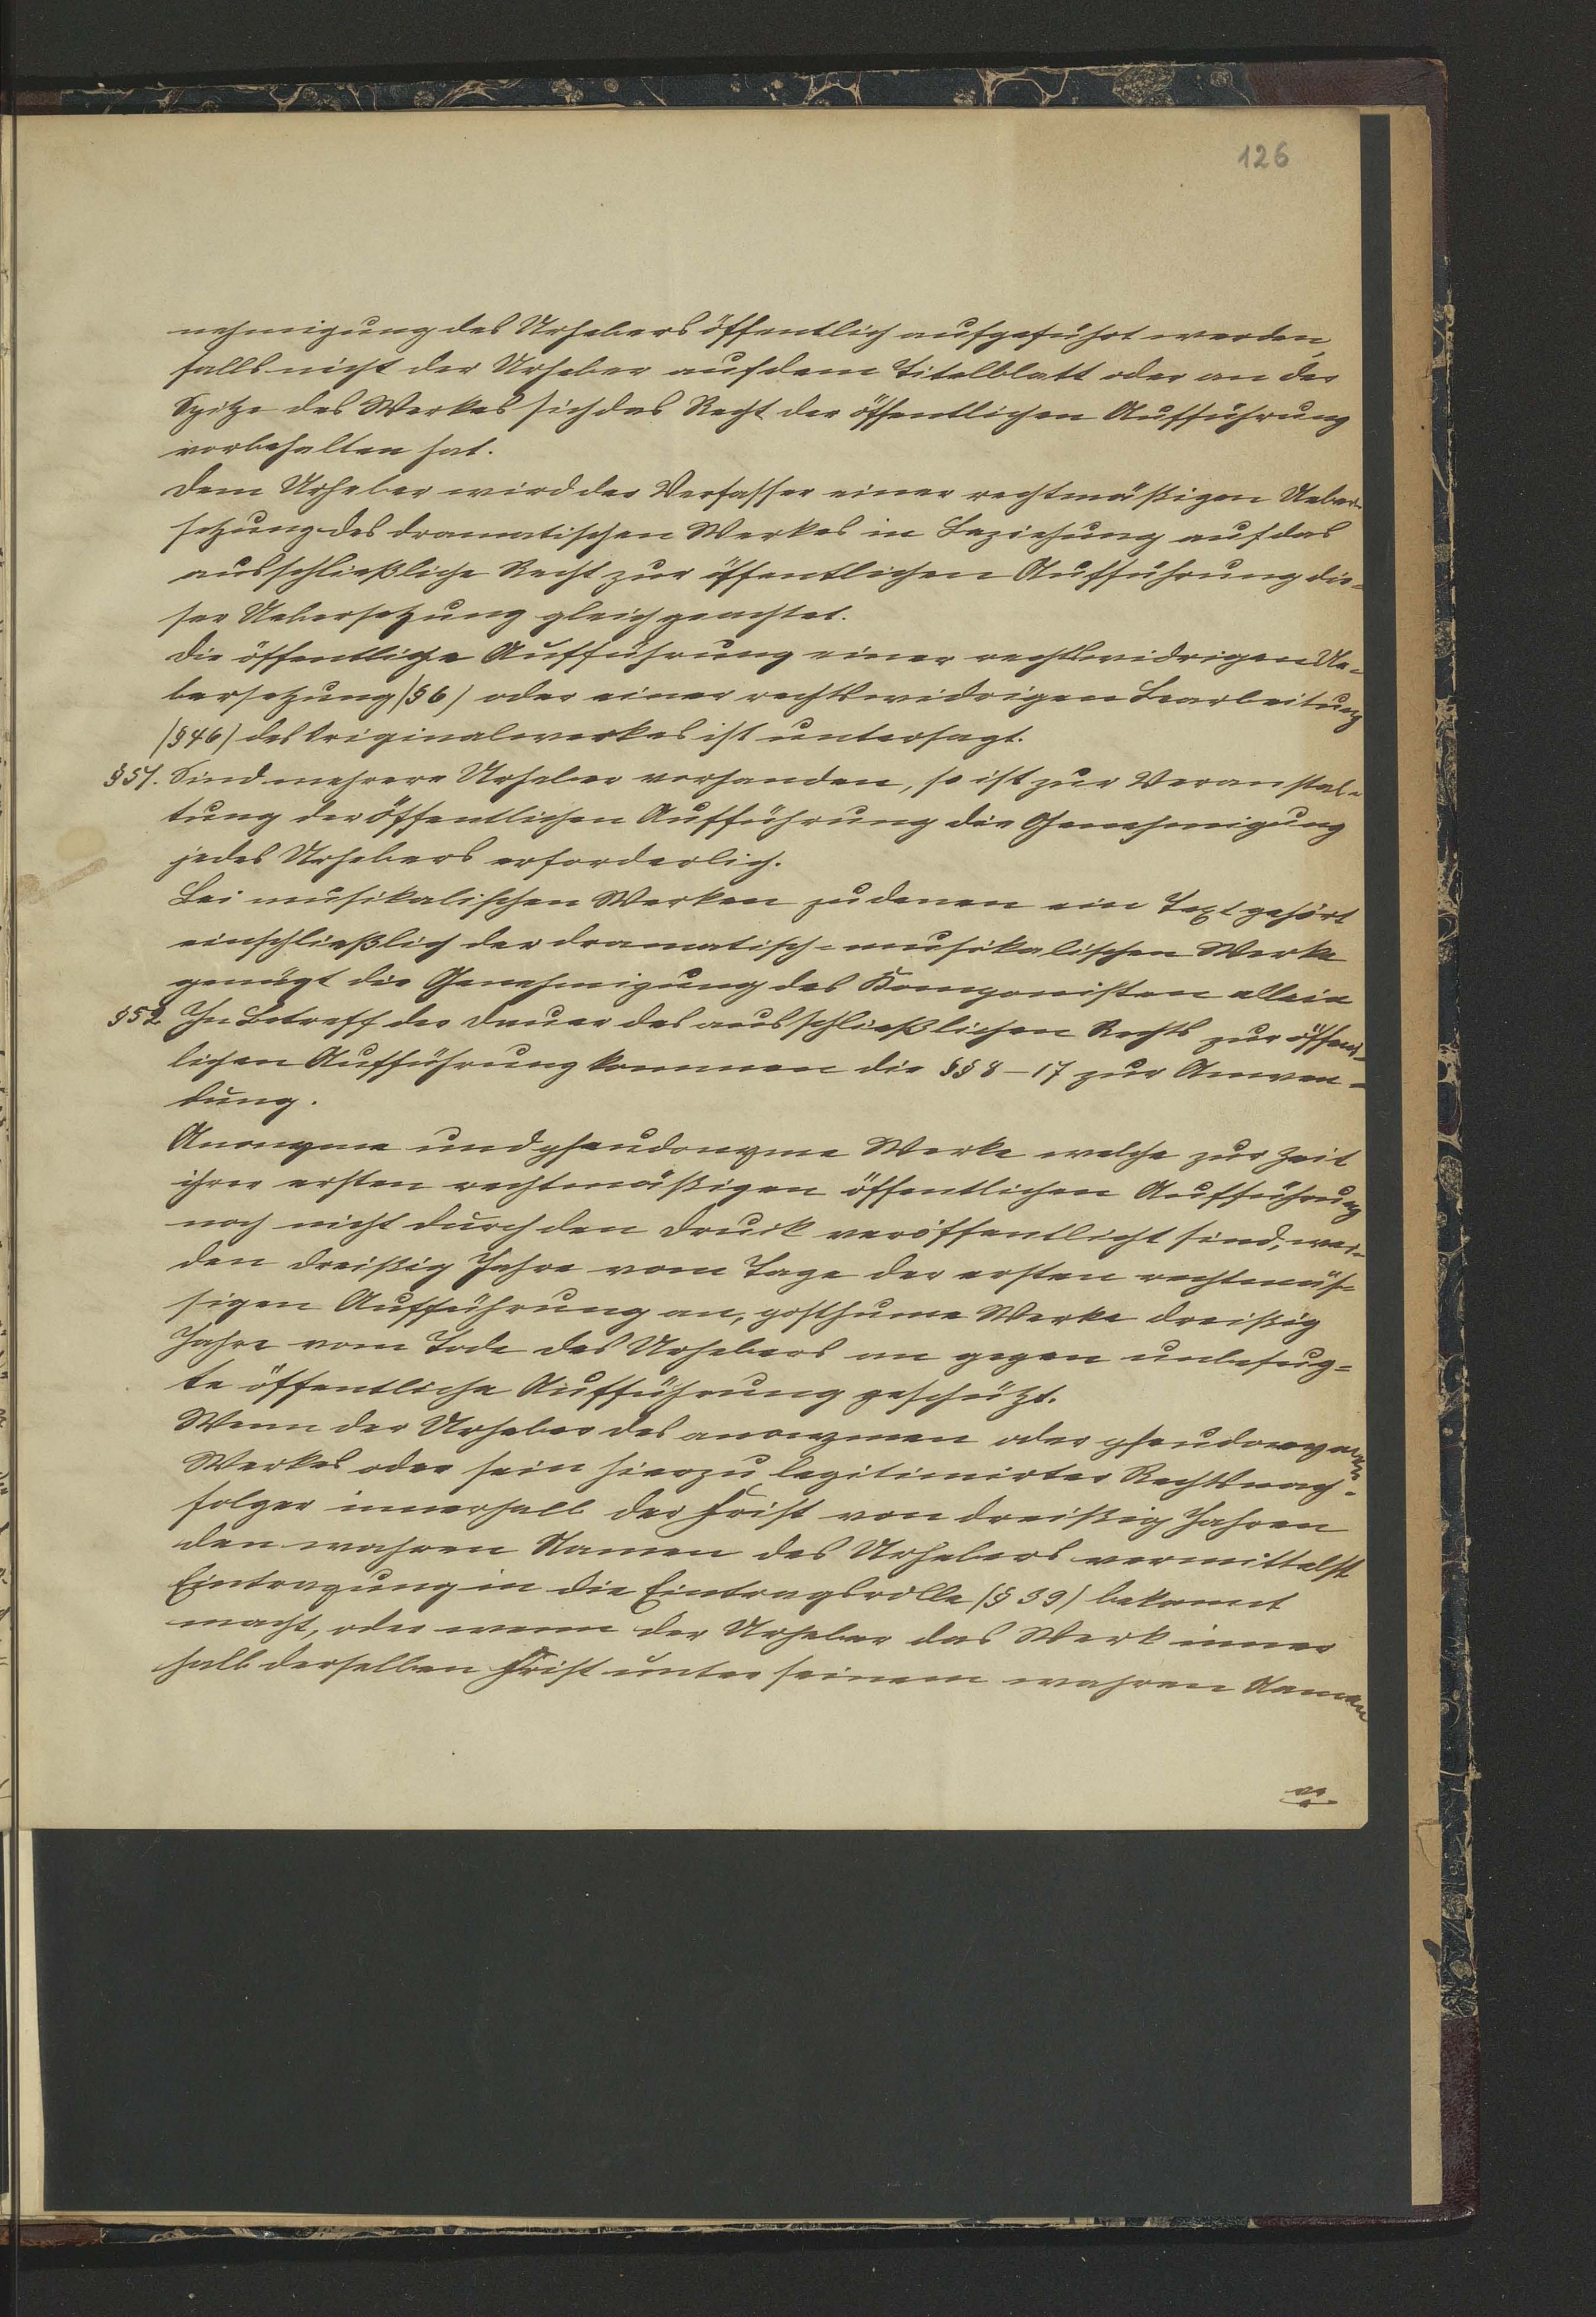 126
nehmigung des Urhebers öffentlich aufgeführt werden,
falls nicht der Urheber auf dem Titelblatt oder an der
Spitze des Werkes sich das Recht der öffentlichen Aufführung
vorbehalten hat.
Dem Urheber wird der Verfasser einer rechtmäßigen Ueber-
setzung des dramatischen Werkes in Beziehung auf das
ausschließliche Recht zur öffentlichen Aufführung die-
ser Uebersetzung gleich geachtet.
Die öffentliche Aufführung einer rechtswidrigen Ue-
bersetzung (§ 6) oder einer rechtswidrigen Bearbeitung
(§ 46) des Originalwerkes ist untersagt.
§ 51. Sind mehrere Urheber vorhanden, so ist zur Veranstal-
tung der öffentlichen Aufführung die Genehmigung
jedes Urhebers erforderlich.
Bei musikalischen Werken zu denen ein Text gehört
einschließlich der dramatisch-musikalischen Werke
genügt die Genehmigung des Komponisten allein
§ 52 In Betreff der Dauer des ausschließlichen Rechts zur öffent-
lichen Aufführung kommen die §§ 8-17 zur Anwen-
dung.
Anonyme und pseudonyme Werke welche zur Zeit
ihrer ersten rechtmäßigen öffentlichen Aufführung
noch nicht durch den Druck veröffentlicht sind, wer-
den dreißig Jahre vom Tage der ersten rechtmäs-
sigen Aufführung an, posthume Werke dreißig
Jahre vom Tode des Urhebers an gegen unbefug-
te öffentliche Aufführung geschützt.
Wenn der Urheber des anonymen oder pseudonymen
Werkes oder sein hierzu legitimirter Rechtsnach-
folger innerhalb der Frist von dreißig Jahren
den wahren Namen des Urhebers vermittelst
Eintragung in die Eintragsrolle (§ 39) bekannt
macht, oder wenn der Urheber das Werk inner
halb derselben Frist unter seinem wahren Namen